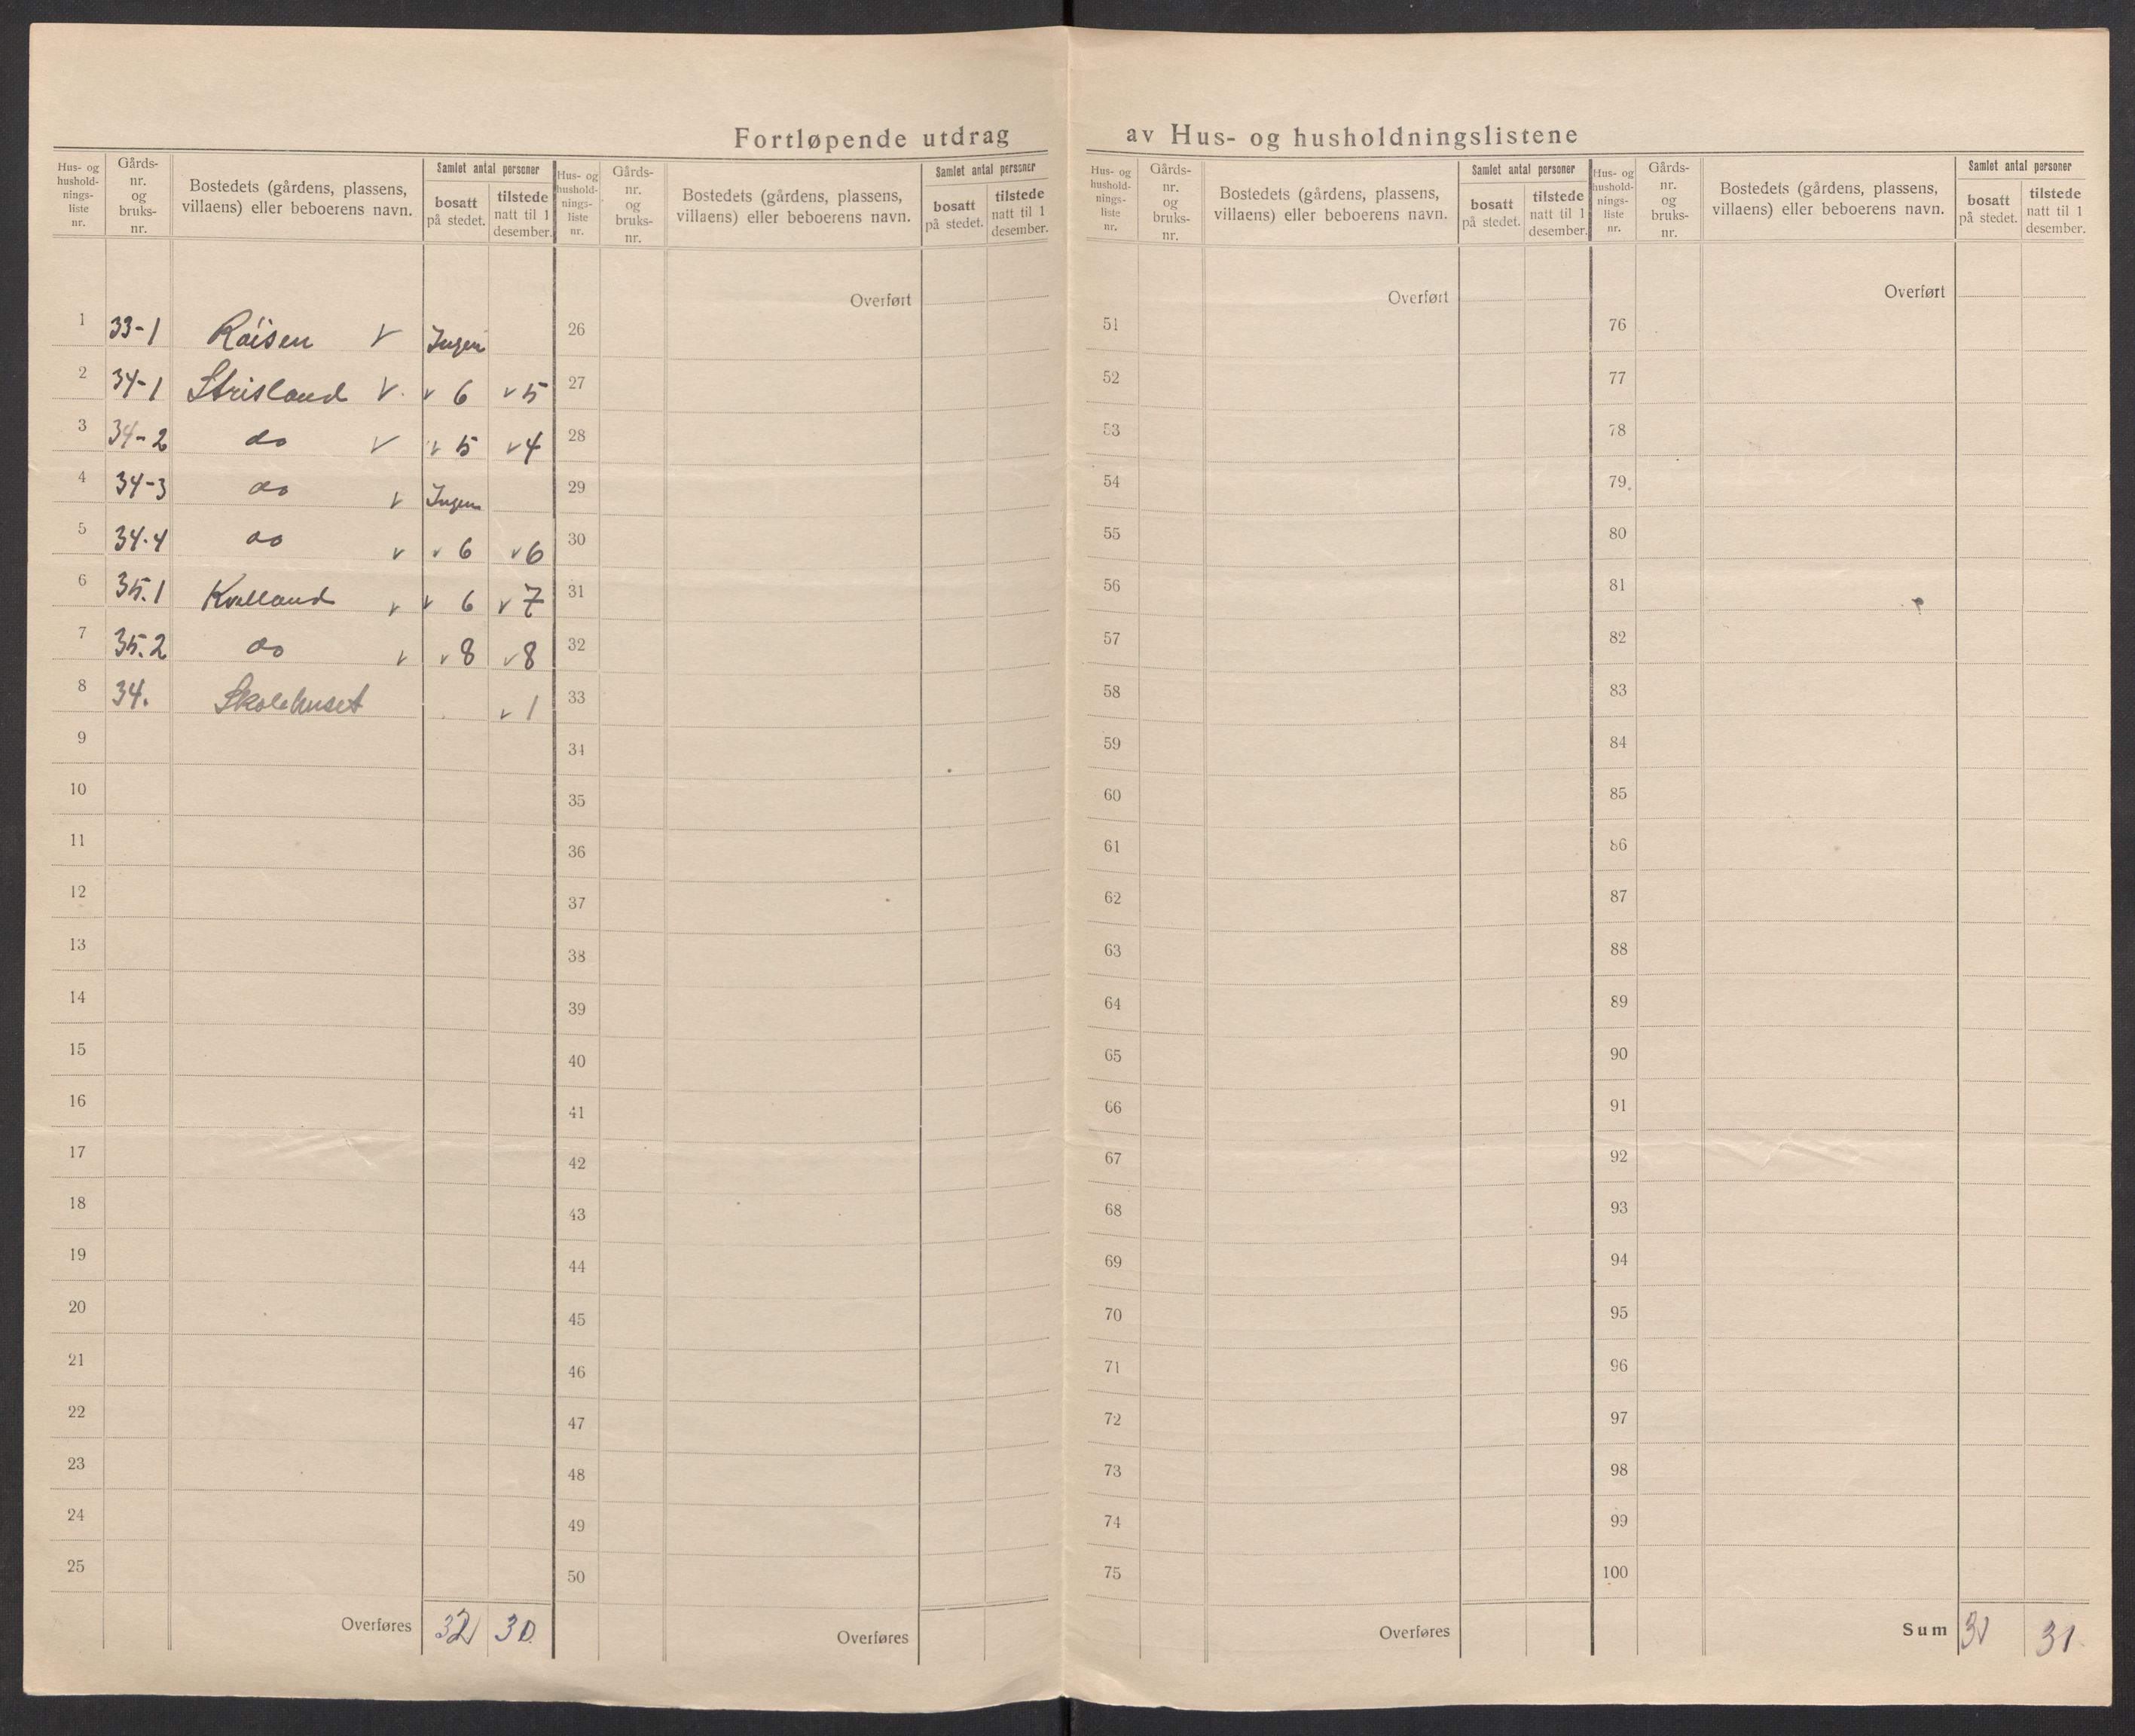 Fortløpende utdrag av Hus- og husholdningslistene
Hus- og
hushold-
nings-
liste
nr.
Gårds-
nr.
og
bruks-
nr.
Bostedets (gårdens, plassens,
villaens) eller beboerens navn.
Samlet antal personer
bosatt
på stedet.
tilstede
natt til 1
desember.
1 33-1 Røisen V Ingen
2 34-1 Strisland V v 6 v 5
3 34-2 do V v 5 v 4
4 34-3 do v Ingen
5 34-4 do v v 6 v 6
6 35.1 Kvelland v v 6 v 7
7 35.2 do v v 8 v 8
8 34. Skolehuset v 1
9
10
11
12
13
14
15
16
17
18
19
20
21
22
23
24
25
Overføres 32 30
Hus- og
hushold-
nings-
liste
nr.
Gårds-
nr.
og
bruks-
nr.
Bostedets (gårdens, plassens,
villaens) eller beboerens navn.
Samlet antal personer
bosatt
på stedet.
tilstede
natt til 1
desember.
Overført
26
27
28
29
30
31
32
33
34
35
36
37
38
39
40
41
42
43
44
45
46
47
48
49
50
Overføres
Hus- og
hushold-
nings-
liste
nr.
Gårds-
nr.
og
bruks-
nr.
Bostedets (gårdens, plassens,
villaens) eller beboerens navn.
Samlet antal personer
bosatt
på stedet.
tilstede
natt til 1
desember.
Overført
51
52
53
54
55
56
57
58
59
60
61
62
63
64
65
66
67
68
69
70
71
72
73
74
75
Overføres
Hus- og
hushold-
nings-
liste
nr.
Gårds-
nr.
og
bruks-
nr.
Bostedets (gårdens, plassens,
villaens) eller beboerens navn.
Samlet antal personer
bosatt
på stedet.
tilstede
natt til 1
desember.
Overført
76
77
78
79
80
81
82
83
84
85
86
87
88
89
90
91
92
93
94
95
96
97
98
99
100
Sum 31